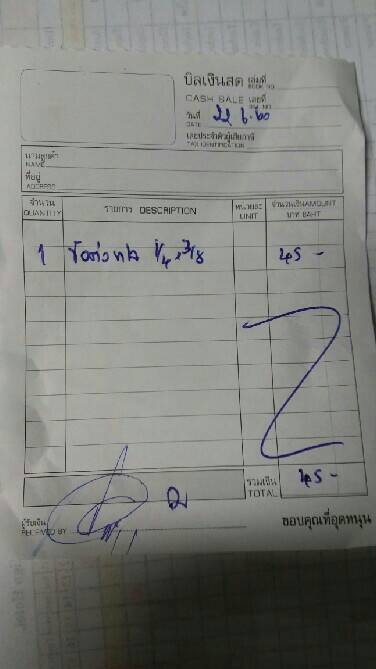 บิลเงินสด เล่มที่ BOOK NO.
CASH SALE เลขที่ BILL NO.
วันที่ DATE 22 6.60
เลขประจำตัวผู้เสียภาษี
TAX IDENTIFICATION
นามลูกค้า
NAME
ที่อยู่
ADDRESS
จำนวน QUANTITY รายการ DESCRIPTION หน่วยละ UNIT จำนวนเงิน AMOUNT บาท BAHT
1 ข้อต่อ 1/4 x 3/8 45 -
รวมเงิน TOTAL 45 -
ผู้รับเงิน
RECEIVED BY
ขอบคุณที่อุดหนุน